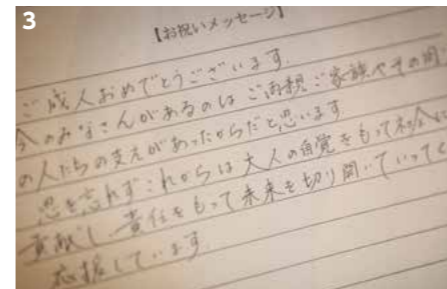 3
【お祝いメッセージ】
ご成人おめでとうございます。
今のみなさんがあるのは ご両親、ご家族やその周
の人たちの支えがあったからだと思います。
恩を忘れず これからは大人の自覚をもって社会に
貢献し 責任をもって未来を切り開いていってく
応援しています。